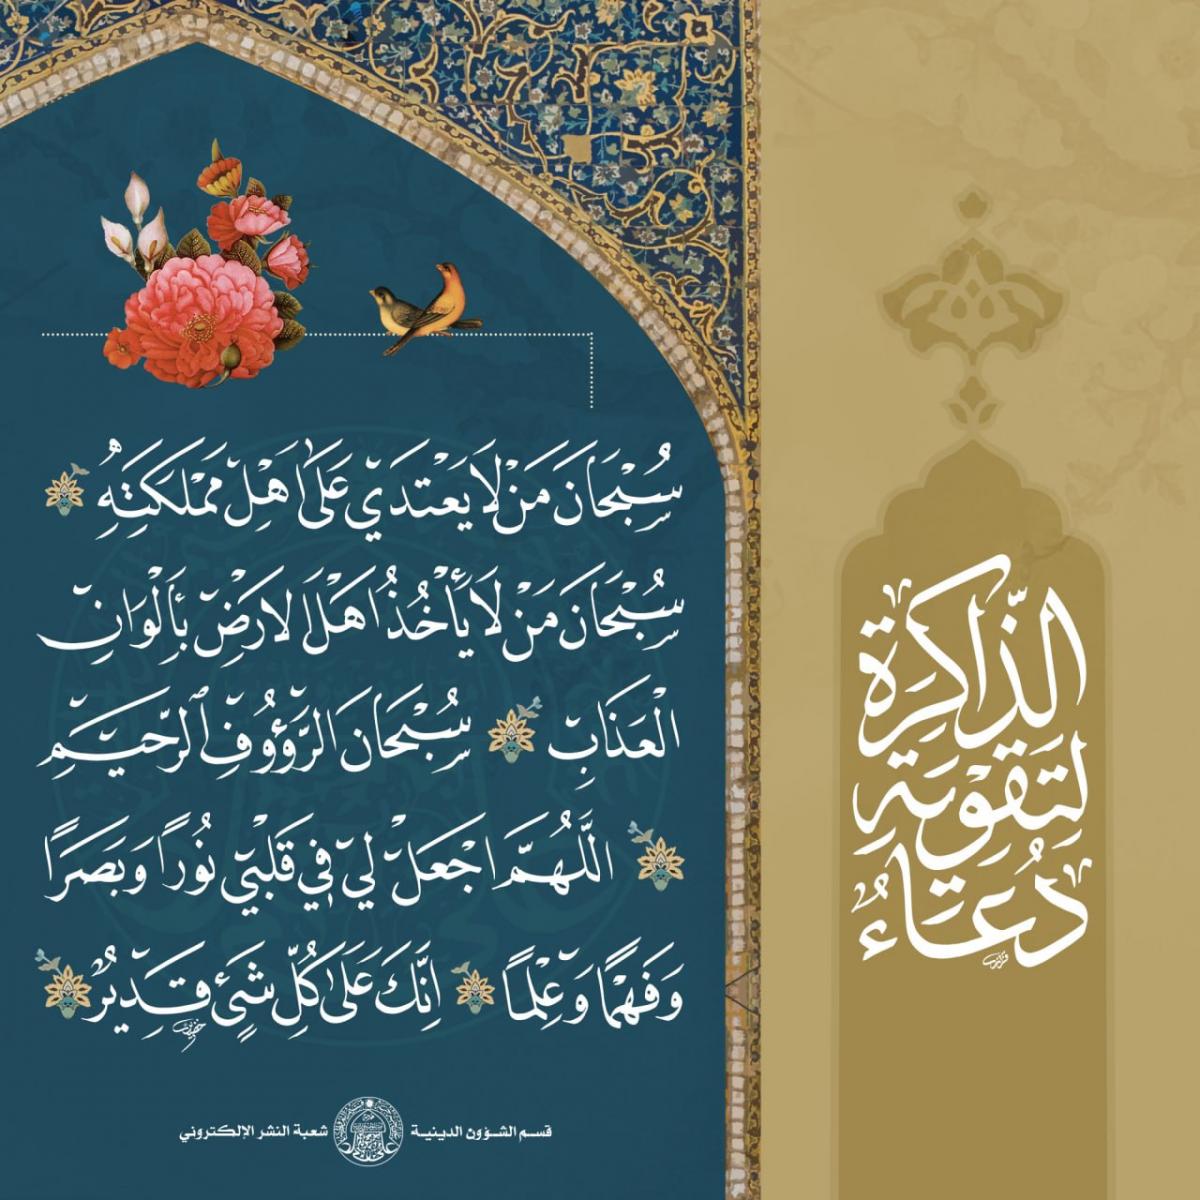 دُعَاءُ
لِتَقْوِيَةِ
الذَّاكِرَةِ
سُبْحَانَ مَنْ لَا يَعْتَدِي عَلَىٰ اَهْلِ مَمْلَكَتِهِ
سُبْحَانَ مَنْ لَا يَأْخُذُ اَهْلَ الَارْضِ بِأَلْوَانِ
الْعَذَابِ سُبْحَانَ الرَّؤُوفِ الرَّحِيمِ
اللَّهُمَّ اجْعَلْ لِي فِي قَلْبِي نُورًا وَبَصَرًا
وَفَهْمًا وَعِلْمًا اِنَّكَ عَلَىٰ كُلِّ شَيْءٍ قَدِيرٌ
قسم الشؤون الدينية شعبة النشر الإلكتروني